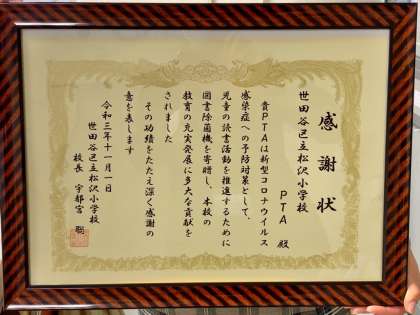 感謝状
世田谷区立松沢小学校
PTA 殿
貴PTAは新型コロナウイルス
感染症への予防対策として、
児童の読書活動を推進するために
図書除菌機を寄贈し、本校の
教育の充実発展に多大な貢献を
されました
その功績をたたえ深く感謝の
意を表します
令和三年十一月一日
世田谷区立松沢小学校
校長 宇都宮 聡